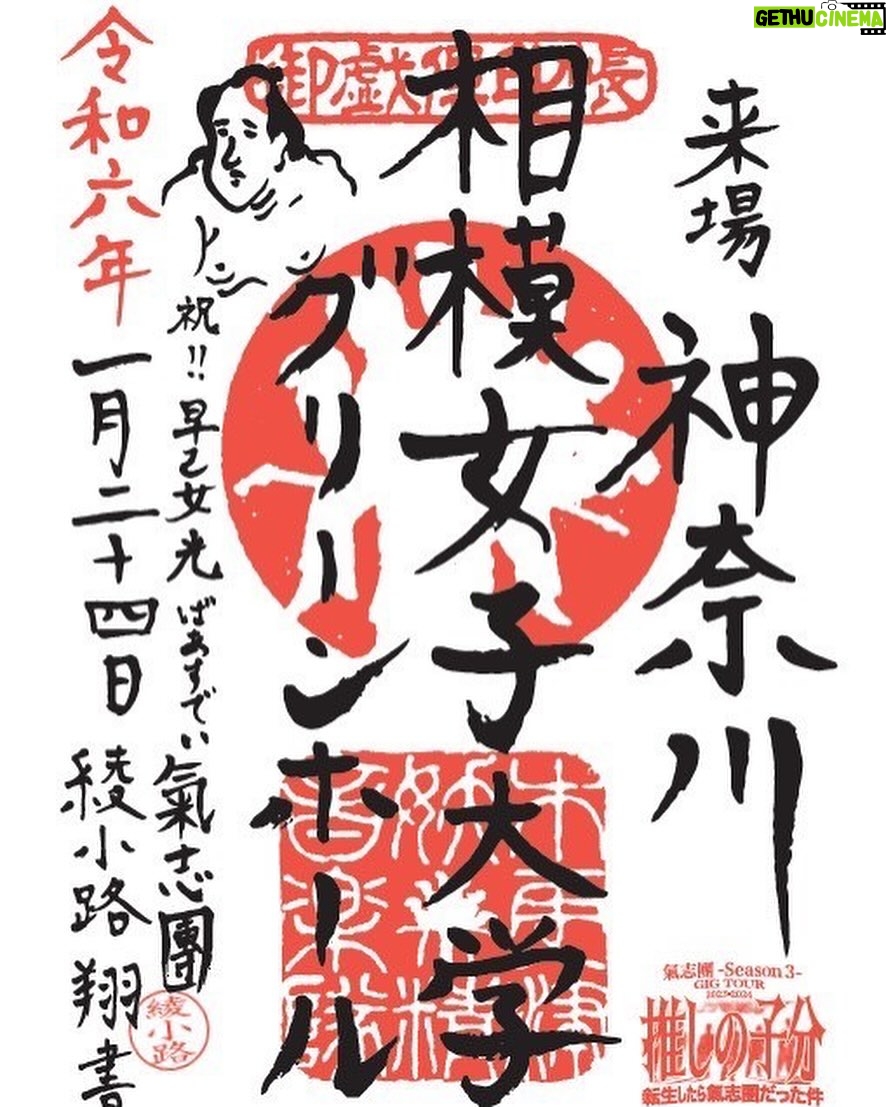 GETHUCINEMA
来場
神奈川
相模女子大学
グリーンホール
祝!! 早乙女光 ばあすでい
氣志團
令和六年
一月二十四日
綾小路 翔 書
綾小路
氣志團 -Season 3-
GIG TOUR
2023-2024
推しの子分
転生したら氣志團だった件